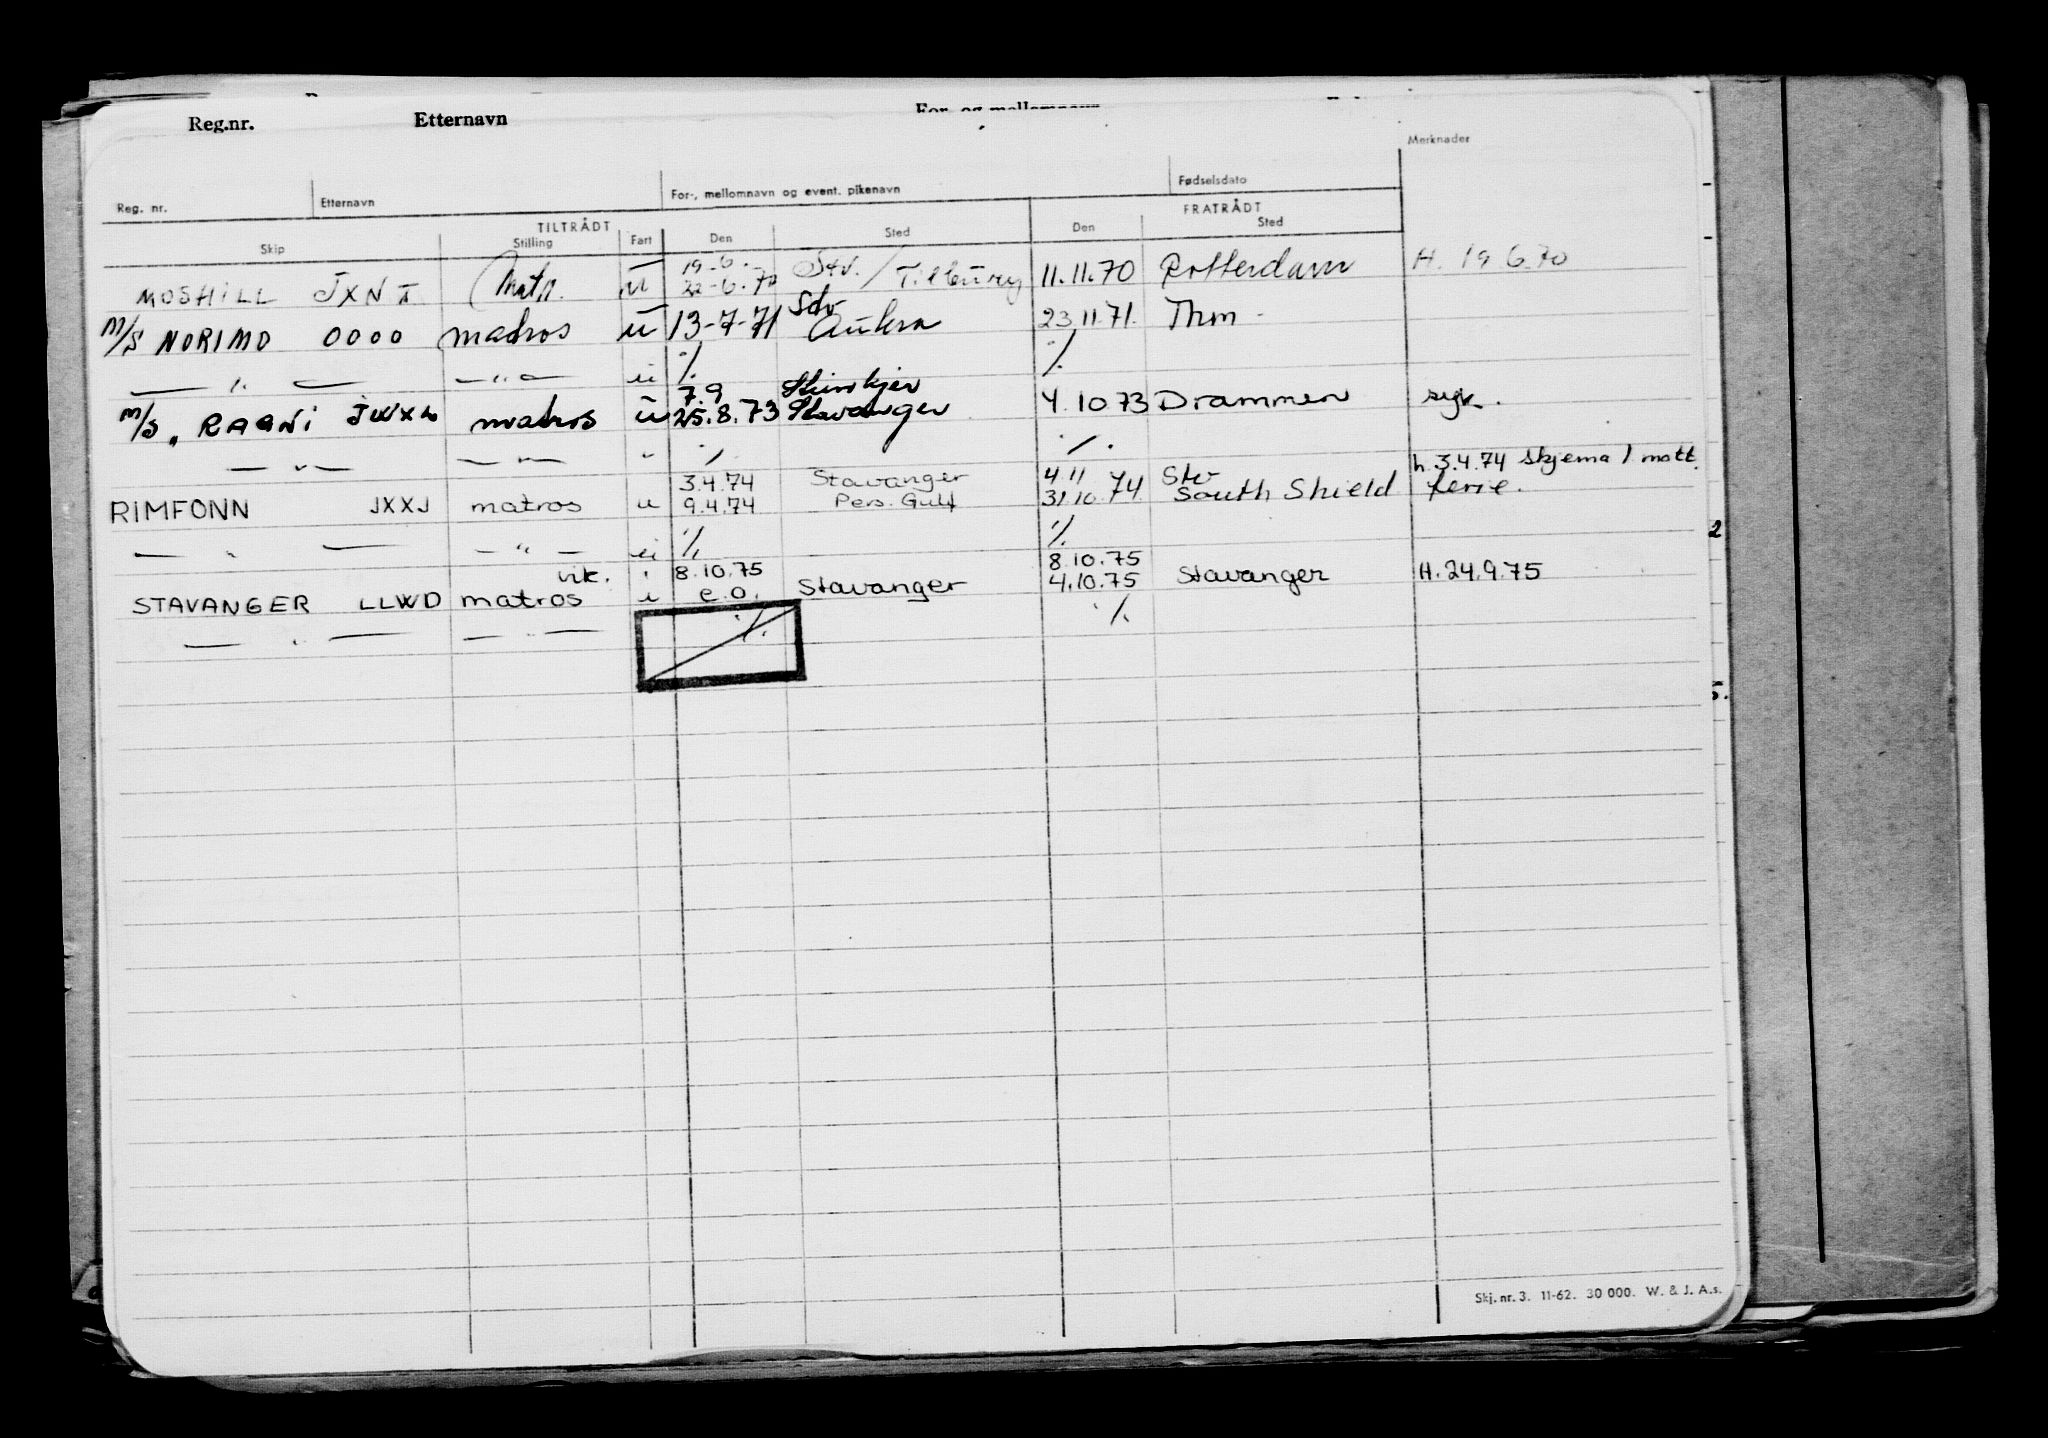 Reg.nr. Etternavn
Merknader
Reg. nr. Etternavn For-, mellomnavn og event. pikenavn Fødselsdato
TILTRÅDT FRATRÅDT
Skip Stilling Fart Den Sted Den Sted
19-6- Stv.
MOSHILL JXNI Matr. u 22-6-70 / Tilbury 11.11.70 Rotterdam H. 19.6.70
M/S NORIMO OOOO matros u 13-7-71 Aukra 23.11.71. Thm -
— " — — " — u ./. ./.
7.9 Steinkjer
M/S RAGNI JWXL matros u 25.8.73 Stavanger 4.10.73 Drammen syk.
— " — — " — " ./. ./.
3.4.74 Stavanger 4.11 Stv h. 3.4.74 skjema 1 mott.
RIMFONN JXXJ matros u 9.4.74 Pers. Gulf 31.10.74 South Shield ferie.
— " — — " — u ./. ./.
vik. 8.10.75 8.10.75
STAVANGER LLWD matros e.o. Stavanger 4.10.75 Stavanger H. 24.9.75
— " — — " — ./. ./.
Skj. nr. 3. 11-62. 30 000. W. & J. A.s.